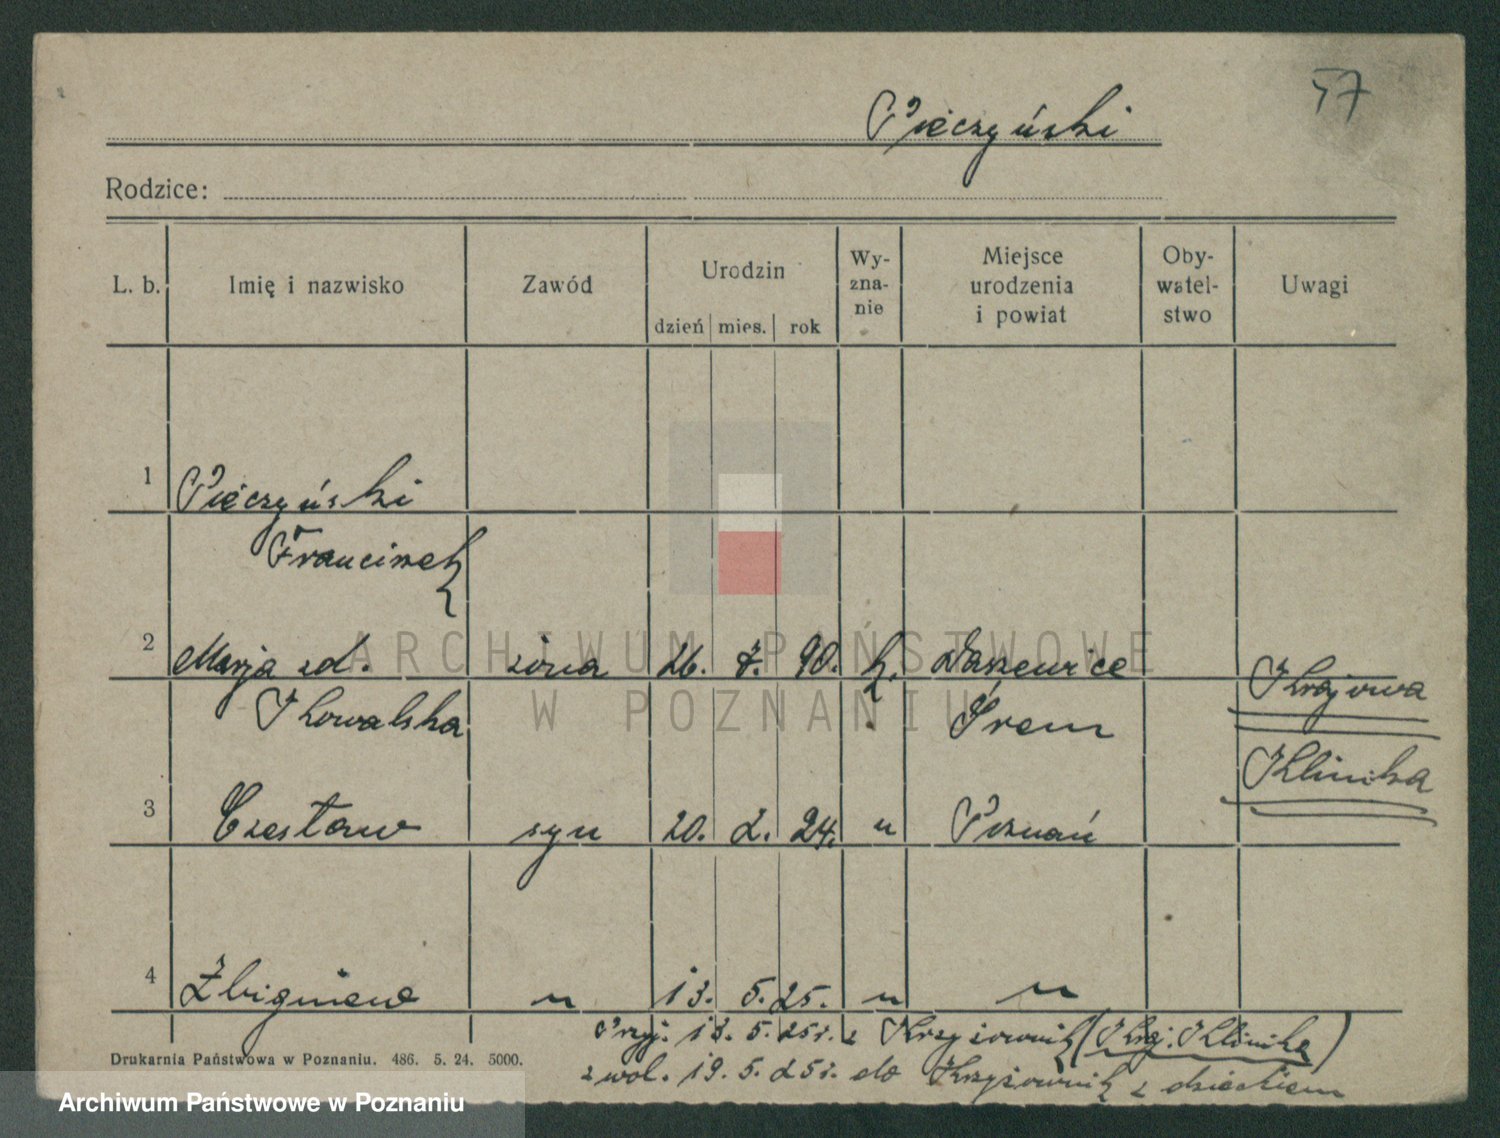 57
Pięczyński
Rodzice:
L. b. Imię i nazwisko Zawód Urodzin dzień mies. rok Wy-zna-nie Miejsce urodzenia i powiat Oby-watel-stwo Uwagi
1 Pięczyński
Franciszek
2 Marja zd. żona 26. 7. 90. k. Daszewice
Kowalska Śrem Krajowa
Klinika
3 Czesław syn 20. 2. 24. " Poznań
4 Zbigniew " 13. 5. 25. " "
Przyj. 13. 5. 25r. z Krzyżownik (Kraj. Klinika)
zwol. 19. 5. 25r. do Krzyżownik z dzieckiem
Drukarnia Państwowa w Poznaniu. 486. 5. 24. 5000.
ARCHIWUM PAŃSTWOWE
W POZNANIU
Archiwum Państwowe w Poznaniu